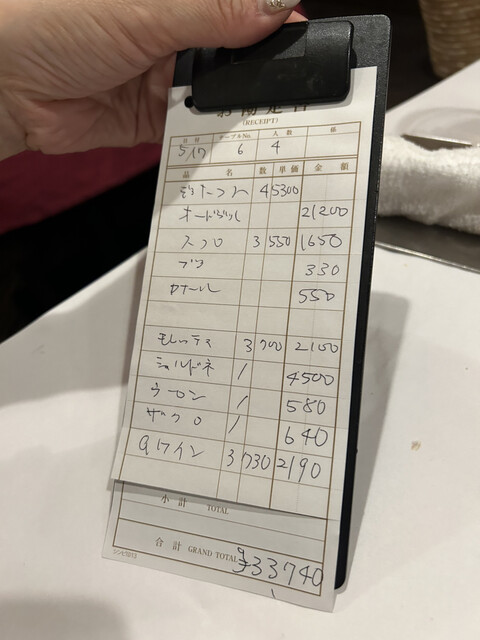 お勘定書
(RECEIPT)
日付 テーブルNo. 人数 様
5/17 6 4
品名 数 単価 金額
4 5300
オードヴル 21200
3 550 1650
330
550
モレッティ 3 700 2100
シャルドネ 1 4500
ウーロン 1 580
ザクロ 1 640
gワイン 3 730 2190
小計 TOTAL
合計 GRAND TOTAL ¥33740